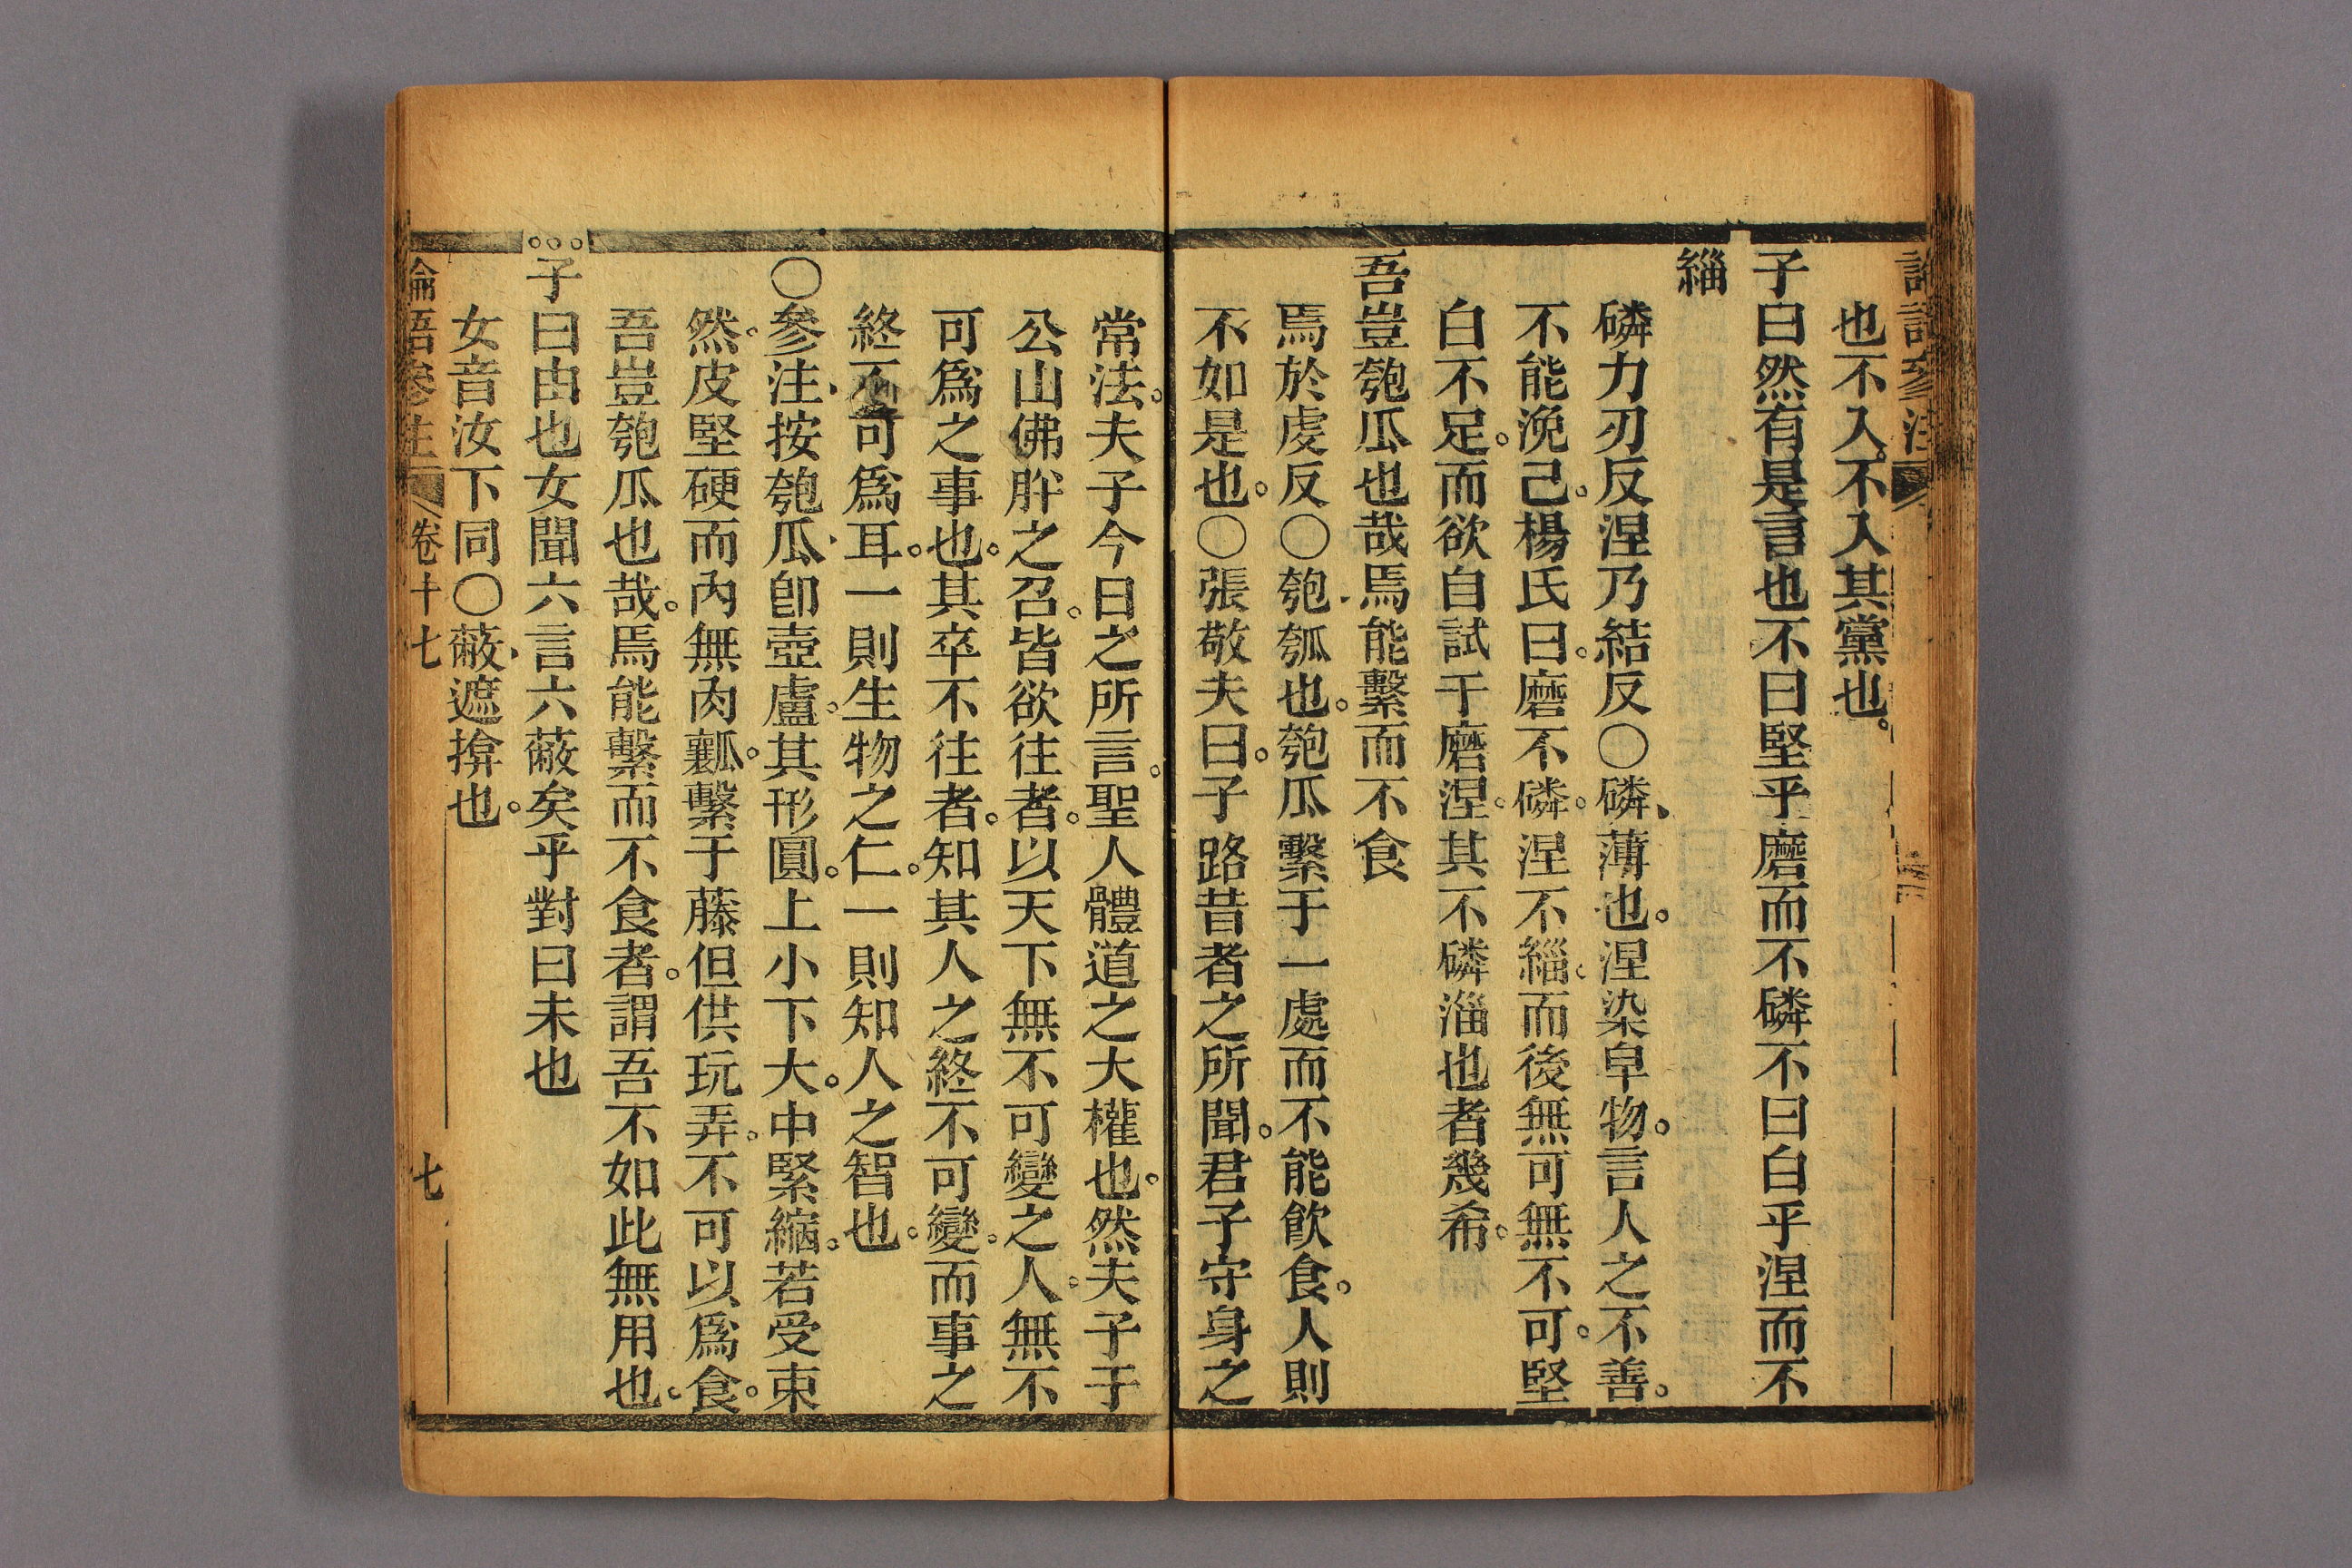 也不入。不入其黨也。
子曰然有是言也不曰堅乎磨而不磷不曰白乎涅而不
緇
磷力刃反涅乃結反〇磷、薄也。涅染皁物。言人之不善。
不能浼己。楊氏曰。磨不磷。涅不緇。而後無可無不可。堅
白不足。而欲自試于磨涅。其不磷淄也者幾希。
吾豈匏瓜也哉焉能繫而不食
焉於虔反〇匏、瓠也。匏瓜繫于一處而不能飲食。人則
不如是也。〇張敬夫曰。子路昔者之所聞。君子守身之
常法。夫子今日之所言。聖人體道之大權也。然夫子于
公山佛肸之召。皆欲往者。以天下無不可變之人。無不
可爲之事也。其卒不往者。知其人之終不可變。而事之
終不可爲耳。一則生物之仁。一則知人之智也。
〇參注、按匏瓜、卽壺盧。其形圓。上小下大。中緊縮。若受束
然。皮堅硬而內無肉瓤。繫于藤但供玩弄。不可以爲食。
吾豈匏瓜也哉。焉能繫而不食者。謂吾不如此無用也。
子曰由也女聞六言六蔽矣乎對曰未也
女音汝下同〇蔽、遮揜也。
論語參注 卷十七 七